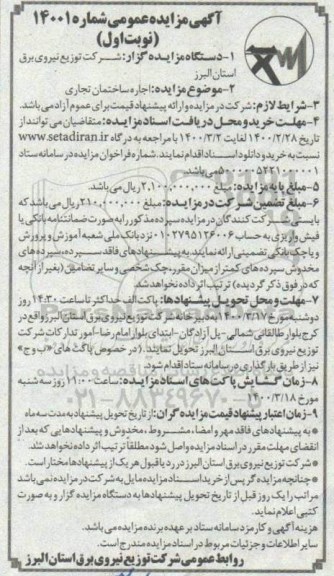 آگهی مزایده عمومی شماره ۱۴۰۰۱
(نوبت اول)
۱-دستگاه مزایده گزار: شرکت توزیع نیروی برق
استان البرز
۲-موضوع مزایده: اجاره ساختمان تجاری
۳-شرایط لازم: شرکت در مزایده و ارائه پیشنهاد قیمت برای عموم آزاد می باشد.
۴-مهلت خرید و محل دریافت اسناد مزایده: متقاضیان می توانند از
تاریخ ۱۴۰۰/۲/۲۸ لغایت ۱۴۰۰/۳/۲ با مراجعه به درگاه www.setadiran.ir
نسبت به خرید و دانلود اسناد اقدام نمایند. شماره فراخوان مزایده در سامانه ستاد
می باشد.
۵-مبلغ پایه مزایده: مبلغ ۲,۱۰۰,۰۰۰,۰۰۰ ریال می باشد.
۶-مبلغ تضمین شرکت در مزایده: مبلغ ۲۱۰,۰۰۰,۰۰۰ ریال می باشد که
بایستی شرکت کنندگان در مزایده سپرده مذکور را به صورت ضمانتنامه بانکی یا
فیش واریزی به حساب ۰۱۰۲۷۹۵۱۲۶۰۰۶ نزد بانک ملی شعبه آموزش و پرورش
و یا چک بانکی تضمینی ارائه نمایند. به پیشنهادهای فاقد سپرده، سپرده های
مخدوش سپرده های کمتر از میزان مقرر، چک شخصی و سایر تضامین (بغیر از آنچه
که در فوق ذکر گردیده) ترتیب اثر داده نخواهد شد.
۷-مهلت و محل تحویل پیشنهادها: پاکت الف حداکثر تا ساعت ۱۴:۳۰ روز
دوشنبه مورخ ۱۴۰۰/۳/۱۷ به دبیرخانه شرکت توزیع نیروی برق استان البرز واقع در
کرج بلوار طالقانی شمالی-پل آزادگان-ابتدای بلوار امام رضا-آمور تدارکات شرکت
توزیع نیروی برق استان البرز تحویل نمایند. (در خصوص پاکت های «ب و ج»
نیز از طریق بارگذاری در سامانه ستاد اقدام شود).
۸-زمان گشایش پاکت های اسناد مزایده: ساعت ۱۱:۰۰ روز سه شنبه
مورخ ۱۴۰۰/۳/۱۸
۹-زمان اعتبار پیشنهاد قیمت مزایده گران: از تاریخ تحویل پیشنهاد به مدت سه ماه
• به پیشنهادهای فاقد مهر و امضاء، مشروط، مخدوش و پیشنهادهایی که بعد از
انقضای مهلت مقرر در اسناد مزایده واصل شود مطلقا ترتیب اثر داده نخواهد شد.
• شرکت توزیع نیروی برق استان البرز در رد یا قبول هر یک از پیشنهادها مختار است.
• چنانچه مزایده گر پس از خرید اسناد مزایده مایل به شرکت در مزایده نمی باشد
مراتب را یک روز قبل از تاریخ تحویل پیشنهادها به دستگاه مزایده گزار و به صورت
کتبی اعلام نماید.
هزینه آگهی و کارمزد سامانه ستاد بر عهده برنده مزایده می باشد.
سایر اطلاعات و جزئیات مربوط در اسناد مزایده مندرج است.
روابط عمومی شرکت توزیع نیروی برق استان البرز